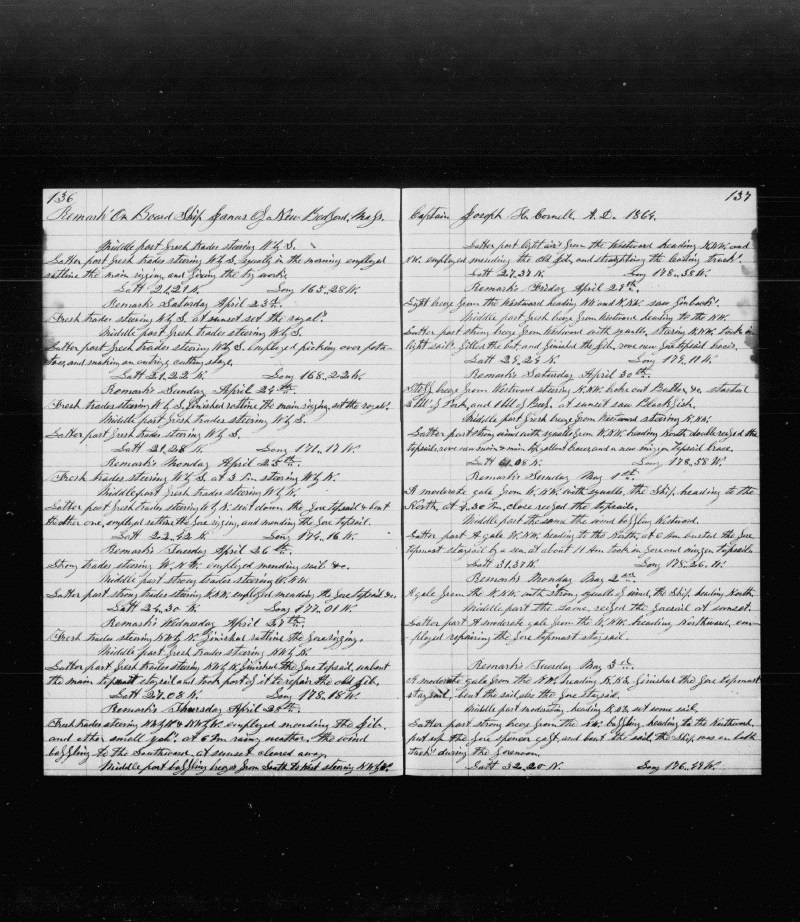 136
Remarks On Board Ship Janus Of New Bedford, Mass.
Middle part fresh trades stering W by S.
Latter part fresh trades stering W by S, squally in the morning employed
ratling the main riging, and fixing the try works,
Latt 21.21 N. Long 165.28 W.
Remarks Saturday April 23rd.
Fresh trades stering W by S, at sunset set the royals.
Middle part fresh trades stering W by S.
Latter part fresh trades stering W by S. employed picking over pota-
toes, and making an cuting stage.
Latt 21.22 N. Long 168.22 W.
Remarks Sunday April 24th.
Fresh trades stering W by S, finished ratling the main riging, set the royals.
Middle part fresh trades stering W by S.
Latter part fresh trades stering W by S.
Latt 21.28 N. Long 171.17 W.
Remarks Monday April 25th.
Fresh trades stering W by S. at 3 Pm stering W by N.
Middle part fresh trades stering W by N.
Latter part fresh trades stering W by N. sent down the fore topsail & bent
another one, employed ratling the fore riging, and mending the fore topsail.
Latt 22.42 N. Long 174.16 W.
Remarks Tuesday April 26th.
Strong trades stering W.N.W. employed mending sail &c.
Middle part strong trades stering W.N.W.
Latter part strong trades stering N.W. employed mending the fore topsail &c.
Latt 24.30 N. Long 177.01 W.
Remarks Wednesday April 27th.
Fresh trades stering NW by N. finished ratling the fore riging.
Middle part fresh trades stering NW by N.
Latter part fresh trades stering NW by N. finished the fore topsail, unbent
the main topmast staysail and took part of it to repair the old jib.
Latt 27.08 N. Long 178.18 W.
Remarks Thursday April 28th.
Fresh trades stering NW by N & NW by W. employed mending the jib,
and other small jobs. at 6 Pm rainy weather, the wind
baffling to the Southward, at sunset cleared away,
Middle part baffling breezes from South to West stering NW by W.
137
Captain Joseph H. Cornell A.D. 1864.
Latter part light airs from the Westward heading N.N.W. and
NW. employed mending the old jib, and straightening the cutting
Latt 27.37 N. Long 178.58 W.
Remarks Friday April 29th.
Light breeze from the Westward heading NW and N.NW. saw finbacks.
Middle part fresh breeze from Westward heading to the NW.
Latter part strong breeze from Westward with squalls, stering N.NW. took in
light sails. filled the bit and finished the jib, rove new fore topsail
Latt 29.24 N. Long 179.11 W.
Remarks Saturday April 30th.
Stiff breeze from Westward stering N.NW. broke out Butter, &c. started
a bbl. of Pork, and 1 bbl of Beef. at sunset saw Blackfish.
Middle part fresh breeze from Westward stering N.NW.
Latter part strong wind with squalls from W.NW. heading North, double reefed the
topsails, rove new main & main top gallant braces, and a new mizen topsail brace.
Latt 31.08 N. Long 178.58 W.
Remarks Sunday May 1st.
A moderate gale from W.NW. with squalls, the Ship heading to the
North, at 4.30 Pm. close reefed the topsails.
Middle part the same the wind baffling Westward.
Latter part A gale W.NW. heading to the North, at 6 Am busted the fore
topmast staysail by a sea, at about 11 Am took in fore and mizen topsails.
Latt 31.37 N. Long 178.26 W.
Remarks Monday May 2nd.
A gale from the W.NW. with strong squalls of wind, the Ship heading North.
Middle part the same, reefed the foresail at sunset.
Latter part A moderate gale from the W.NW. heading Northward, em-
ployed repairing the fore topmast staysail.
Remarks Tuesday May 3rd.
A moderate gale from the NW. heading N.NE. finished the fore topmast
staysail, bent the sail, also the fore staysail.
Middle part moderating, heading N.NE. set some sail.
Latter part strong breeze from the NW. baffling heading to the Northward,
put up the fore spencer gaft, and bent the sail, the Ship was on both
tacks during the forenoon,
Latt 32.20 N. Long 176.49 W.